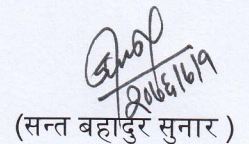 २०७६/६/९
(सन्त बहादुर सुनार )